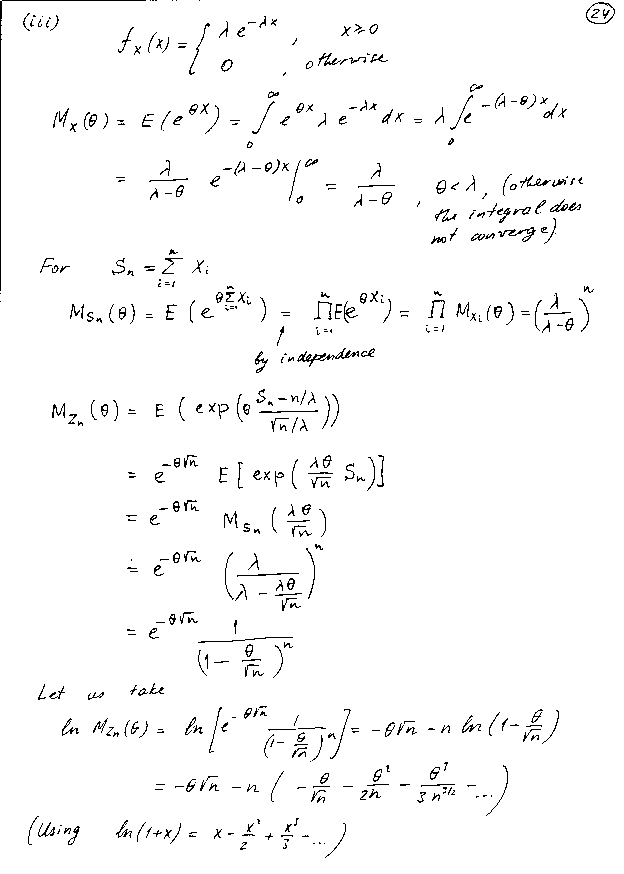 (iii) 24
f_X(x) = { λ e^{-λx}, x ≥ 0
0, otherwise
M_X(θ) = E(e^{θX}) = ∫_0^∞ e^{θx} λ e^{-λx} dx = λ ∫_0^∞ e^{-(λ-θ)x} dx
= λ/(λ-θ) e^{-(λ-θ)x} |_0^∞ = λ/(λ-θ), θ < λ, (otherwise
the integral does
not converge).
For S_n = Σ_{i=1}^n X_i
M_{S_n}(θ) = E(e^{θ Σ_{i=1}^n X_i}) = Π_{i=1}^n E(e^{θX_i}) = Π_{i=1}^n M_{X_i}(θ) = (λ/(λ-θ))^n
by independence
M_{Z_n}(θ) = E(exp(θ (S_n - n/λ)/(√n/λ)))
= e^{-θ√n} E[exp(λθ/√n S_n)]
= e^{-θ√n} M_{S_n}(λθ/√n)
= e^{-θ√n} (λ/(λ - λθ/√n))^n
= e^{-θ√n} 1/(1 - θ/√n)^n
Let us take
ln M_{Z_n}(θ) = ln[e^{-θ√n} 1/(1 - θ/√n)^n] = -θ√n - n ln(1 - θ/√n)
= -θ√n - n(-θ/√n - θ²/2n - θ³/3n^{3/2} - ...)
(Using ln(1+x) = x - x²/2 + x³/3 - ...)